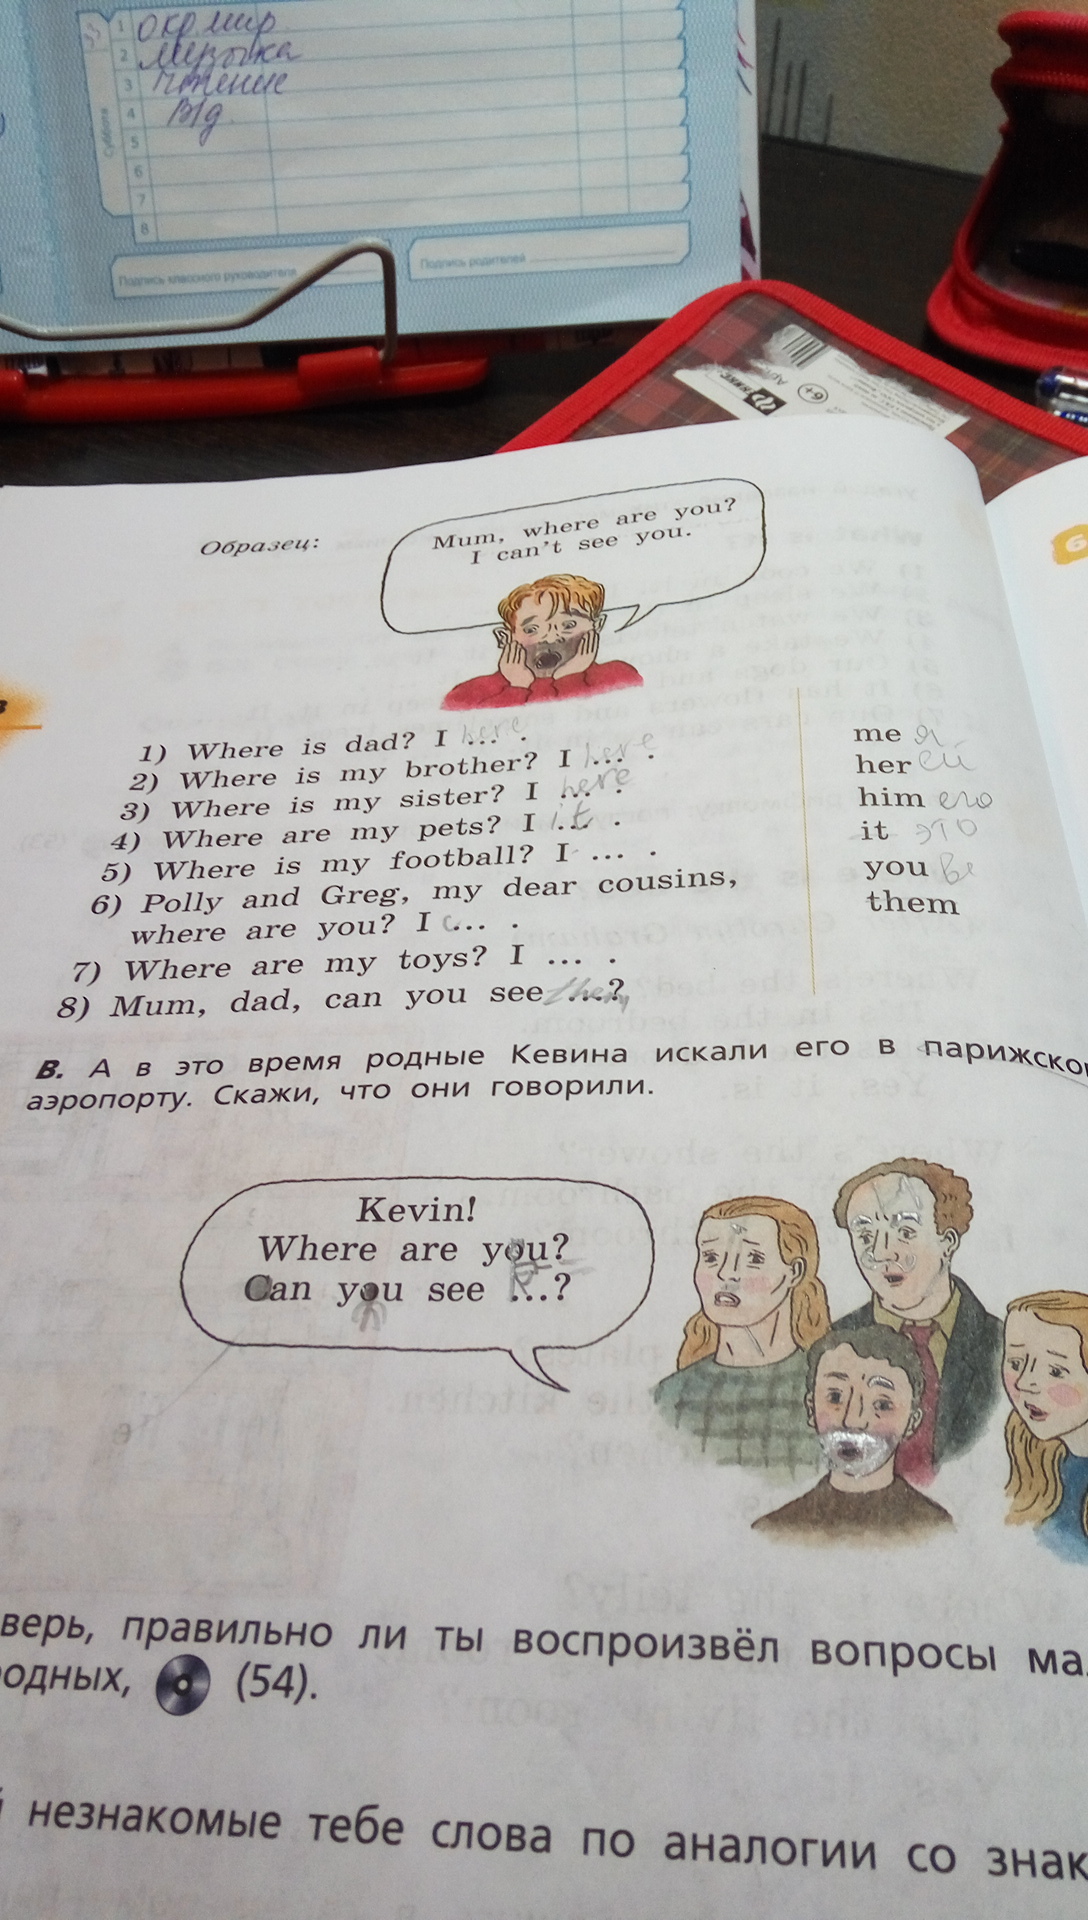 1 окр мир
2 музыка
3 чтение
4
5
6
7
8
Суббота
Подпись классного руководителя
Подпись родителей
6+
Образец:
Mum, where are you?
I can't see you.
6
1) Where is dad? I here ... .
2) Where is my brother? I here ... .
3) Where is my sister? I here ... .
4) Where are my pets? I it ... .
5) Where is my football? I ... .
6) Polly and Greg, my dear cousins,
where are you? I ... .
7) Where are my toys? I ... .
8) Mum, dad, can you see them ...?
me я
her ей
him его
it это
you
them
B. А в это время родные Кевина искали его в парижском
аэропорту. Скажи, что они говорили.
Kevin!
Where are you?
Can you see ...?
верь, правильно ли ты воспроизвёл вопросы
родных, (54).
незнакомые тебе слова по аналогии со